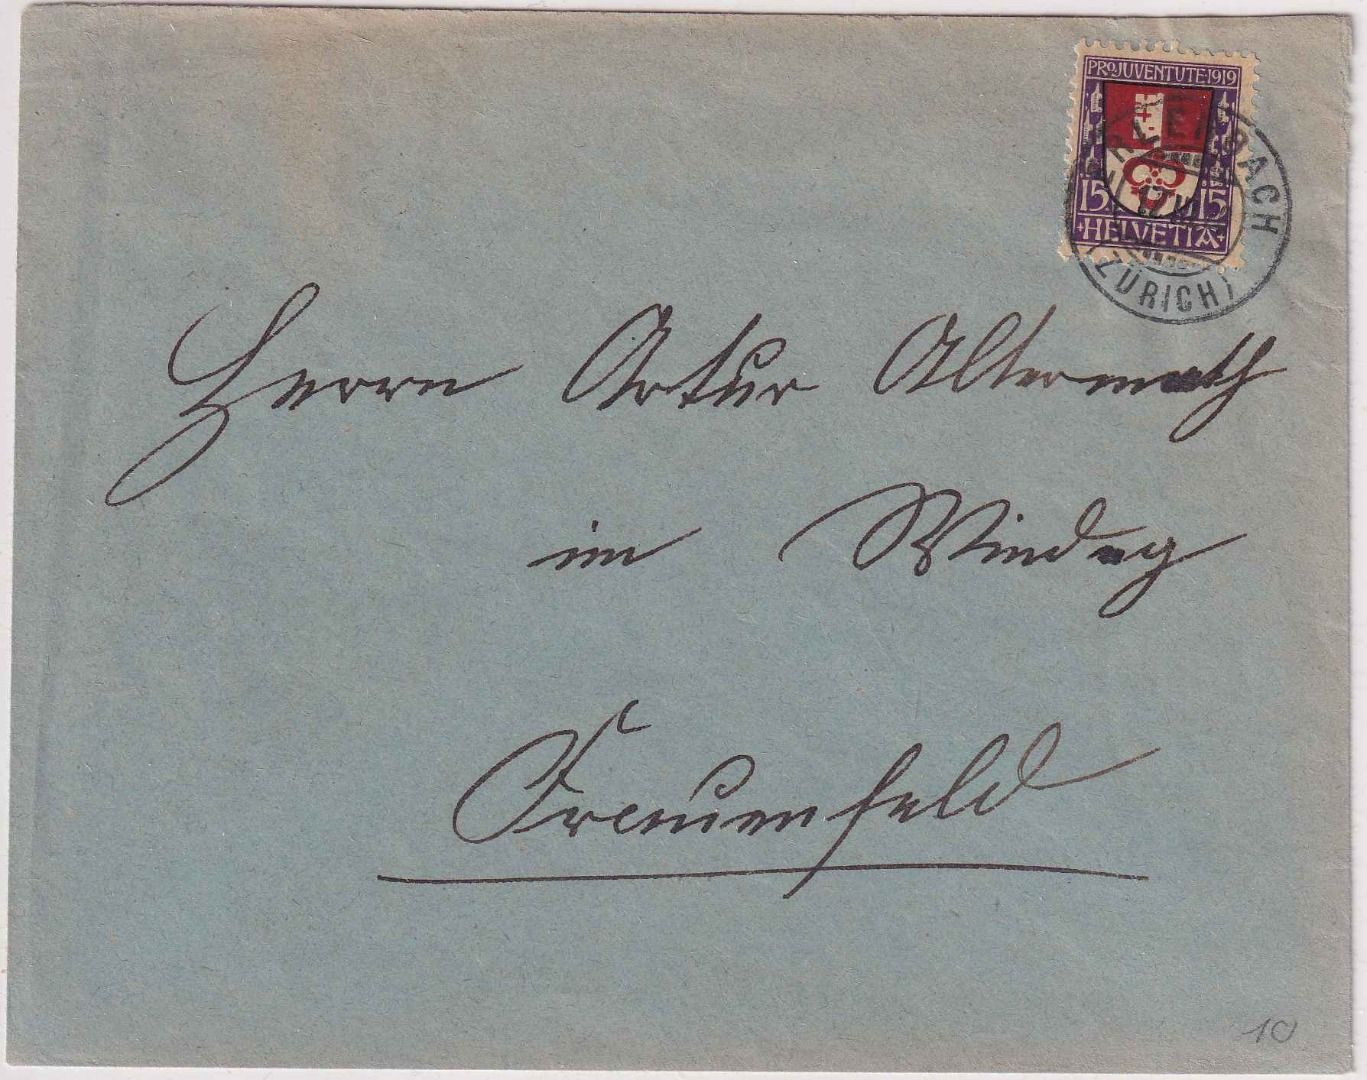 PRO JUVENTUTE·1919
15 15
+HELVETIA+
ERLENBACH
(ZÜRICH)
Herrn Artur Altermath
im Windeg
Frauenfeld
10